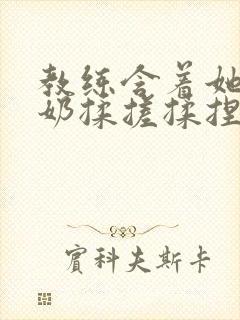 教练含着她
奶揉搓揉捏
宾科夫斯卡